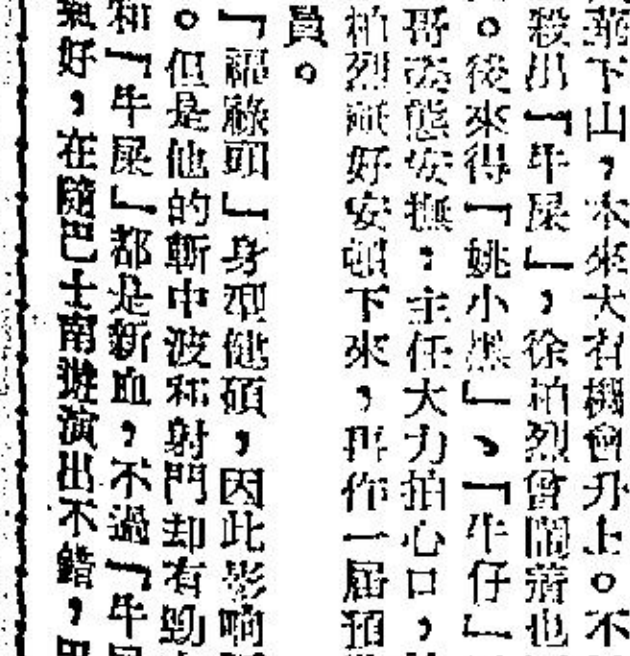 下山,本來大有機會升上。不
殺出「牛屎」,徐柏烈曾鬧着也
。後來得「姚小黑」、「牛仔」
哥姿態安撫:主任大力拍心口,
柏烈祇好安頓下來,再作一屆預
員。
「福祿頭」身型健碩,因此影响
。但是他的斬中波和射門却有勁
和「牛屎」都是新血,不過「牛
氣好,在隨巴士南遊演出不錯,